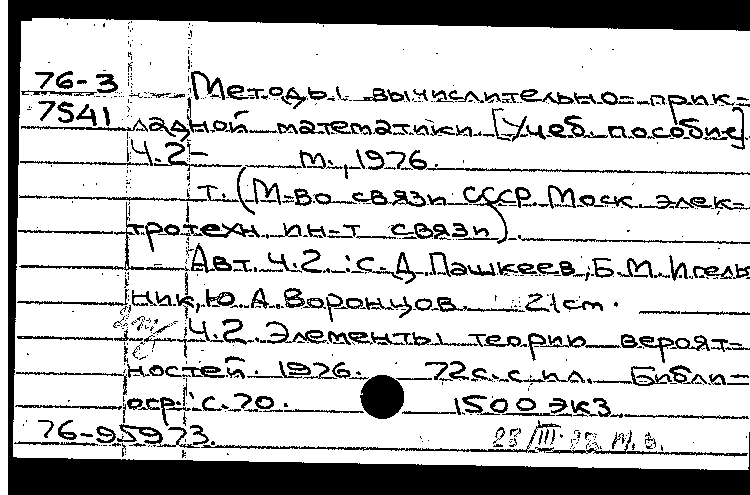 76-3 Методы вычислительно-прик-
7541 ладной математики [Учеб. пособие]
Ч.2- М., 1976.
т. (М-во связи СССР. Моск. элек-
тротехн. ин-т связи).
Авт. Ч.2. : С.Д. Пашкеев, Б.М. Игель-
ник, Ю.А. Воронцов. 21 cm.
Ч.2. Элементы теории вероят-
ностей. 1976. 72 с. с ил. Библи-
огр.: с. 70. 1500 экз.
76-95973.